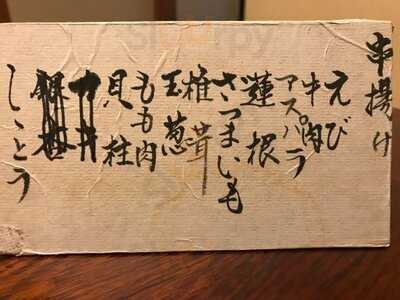 串揚げ
えび
牛肉
アスパラ
蓮根
さつまいも
椎茸
玉葱
もも肉
貝柱
しゝとう